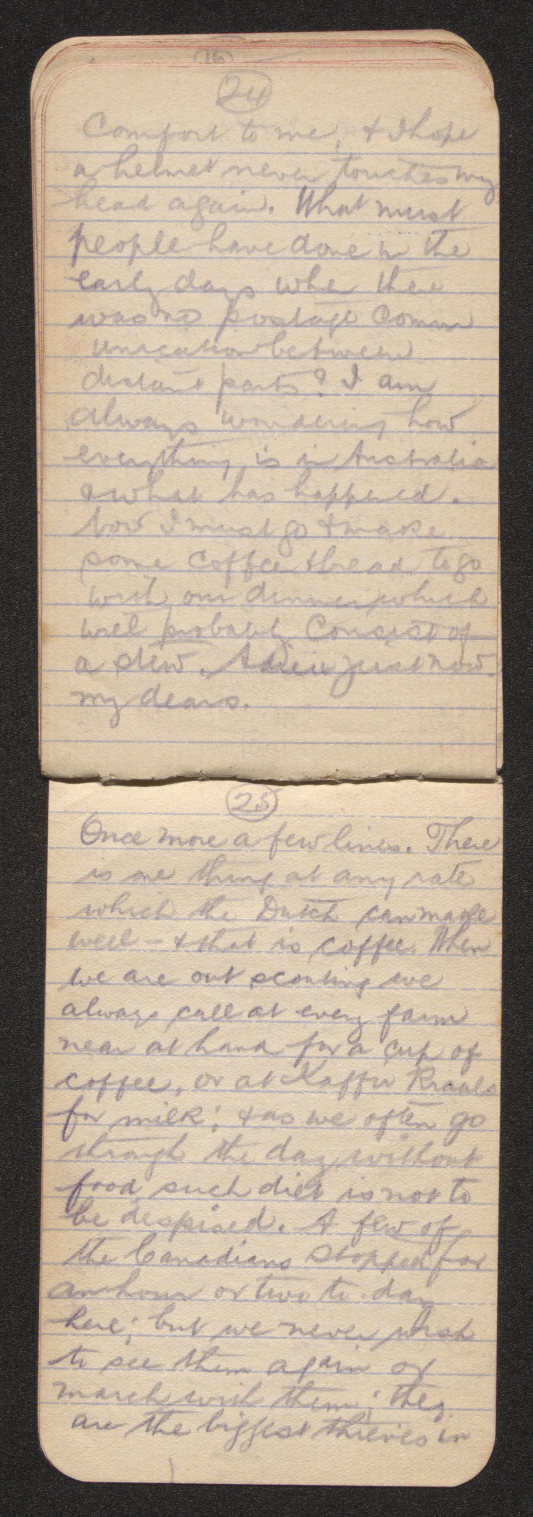 24
Comfort to me, & I hope
a helmet never touches my
head again. What must
people have done in the
early days when there
was no postage Comm
unication between
distant parts? I am
always wondering how
everything is in Australia
& what has happened.
Now I must go & make
some coffee & bread to go
with our dinner, which
will probably consist of
a stew. Adieu just now.
my dears.
25
Once more a few lines. There
is one thing at any rate
which the Dutch can make
well - & that is coffee. When
we are out scouting we
always call at every farm
near at hand for a cup of
coffee, or at Kaffir Kraals
for milk; & as we often go
through the day without
food, such diet is not to
be despised. A few of
the Canadians stopped for
an hour or two to-day
here; but we never wish
to see them again or
march with them; they
are the biggest thieves in